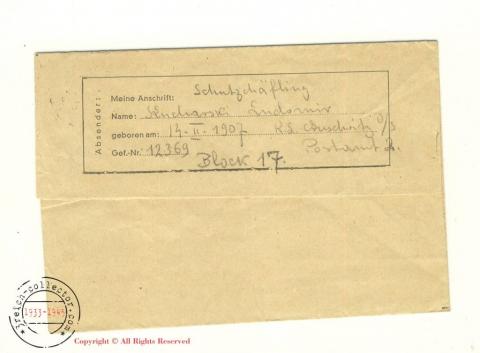 Absender:
Schutzhäftling
Meine Anschrift:
Name: Kucharski Ludomir
geboren am: 14-II-1907 K.L. Auschwitz O/S
Gef.-Nr. 12369 Postamt 2.
Block 17.
3reich-collector.com
1933-1945
Copyright © All Rights Reserved